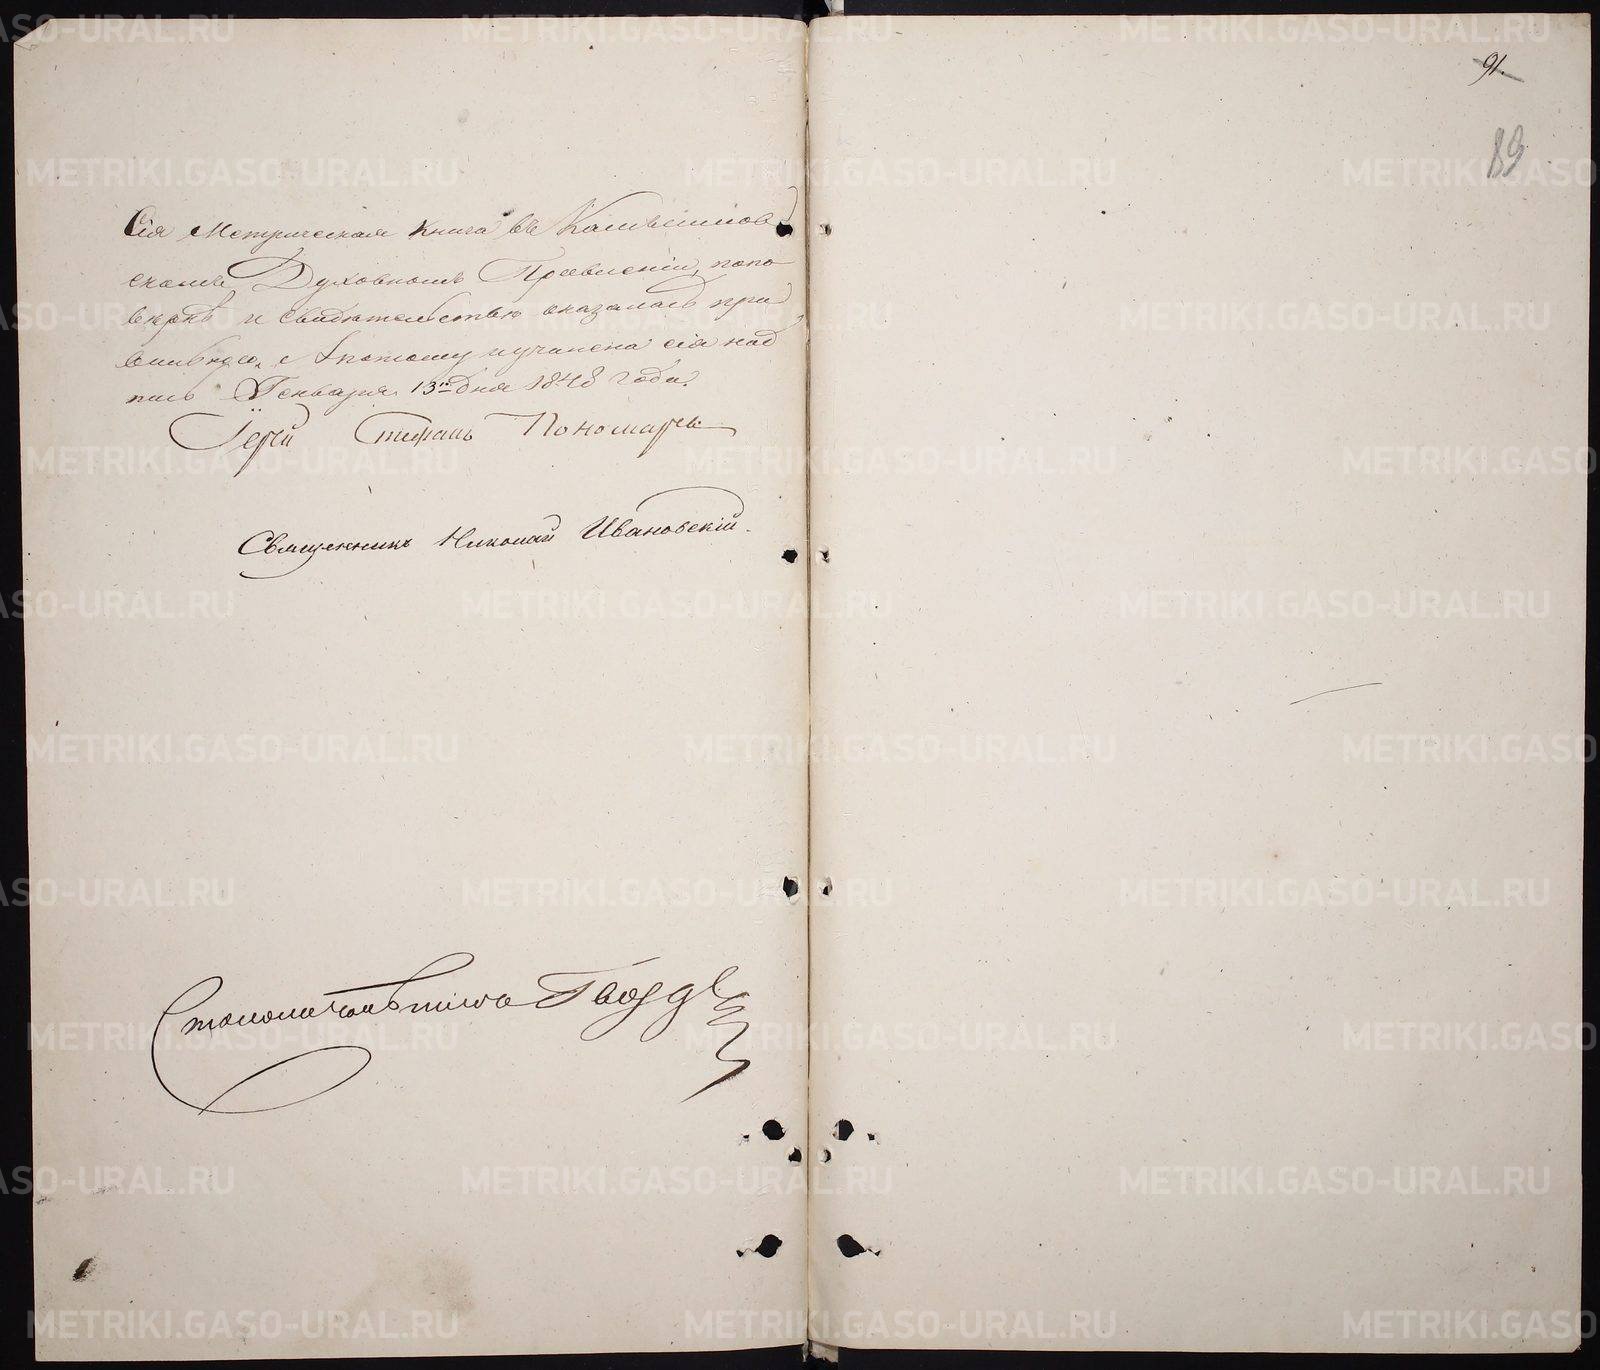 Сія Метрическая книга въ Камышлов
скомъ Духовномъ Правленіи, попо
вѣркѣ и свидѣтельству оказалась при
 и потому и учинена сія над
пись Генваря 13го дня 1848 года.
Іерей Стефанъ Пономаревъ
Священникъ Николай Ивановскій.
91.
89
METRIKI.GASO-URAL.RU